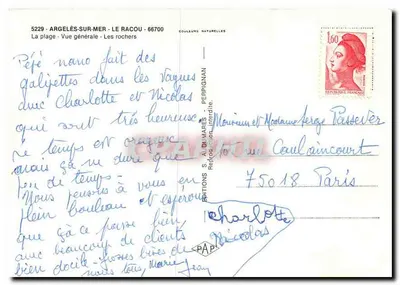 5229 - ARGELÈS-SUR-MER - LE RACOU - 66700
La plage - Vue générale - Les rochers
COULEURS NATURELLES
1,60
Pépé nano fait des
galipettes dans les vagues
avec Charlotte et Nicolas
qui sont très heureux
Le temps est orageux
mais ça ne dure que
peu de temps -
Nous pensons à vous en
plein bouleau et espérons
que ça se passe bien
avec beaucoup de clients
bien docile - grosses bises de
nous tous, Marie
Jean
Monsieur et Madame Serge Passever
rue Caulaincourt
75018 Paris
Charlotte
Nicolas
PAP